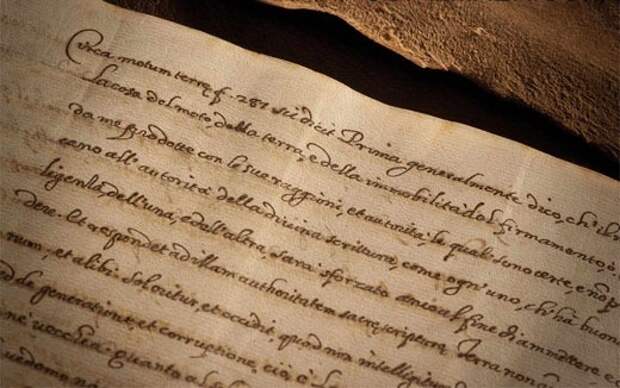 Circa motum terrę f. 287 sic dicit Prima generalmente dico, ch'il
la cosa del moto della terra, e della immobilità del firmamento, ò
da me prodotte con le sue raggioni, et autorità, le quali sono certe, e nõ p
cano all'autorità della divina scrittura, come ogn'uno, ch'hà buona
ligenza dell'una, e dell'altra, sarà sforzato anco al fine di ammettere e c
dere. Et respondet ad illam authoritatem sacrę scripturę Terra non
num, et alibi solᵒritur, et occidit, quod non intelligi
de generatione, et corruptione, ciò è
nè vecchia. Quanto al so